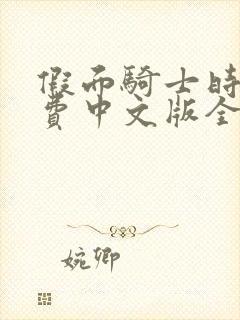 假而騎士時
費中文版全
婉卿